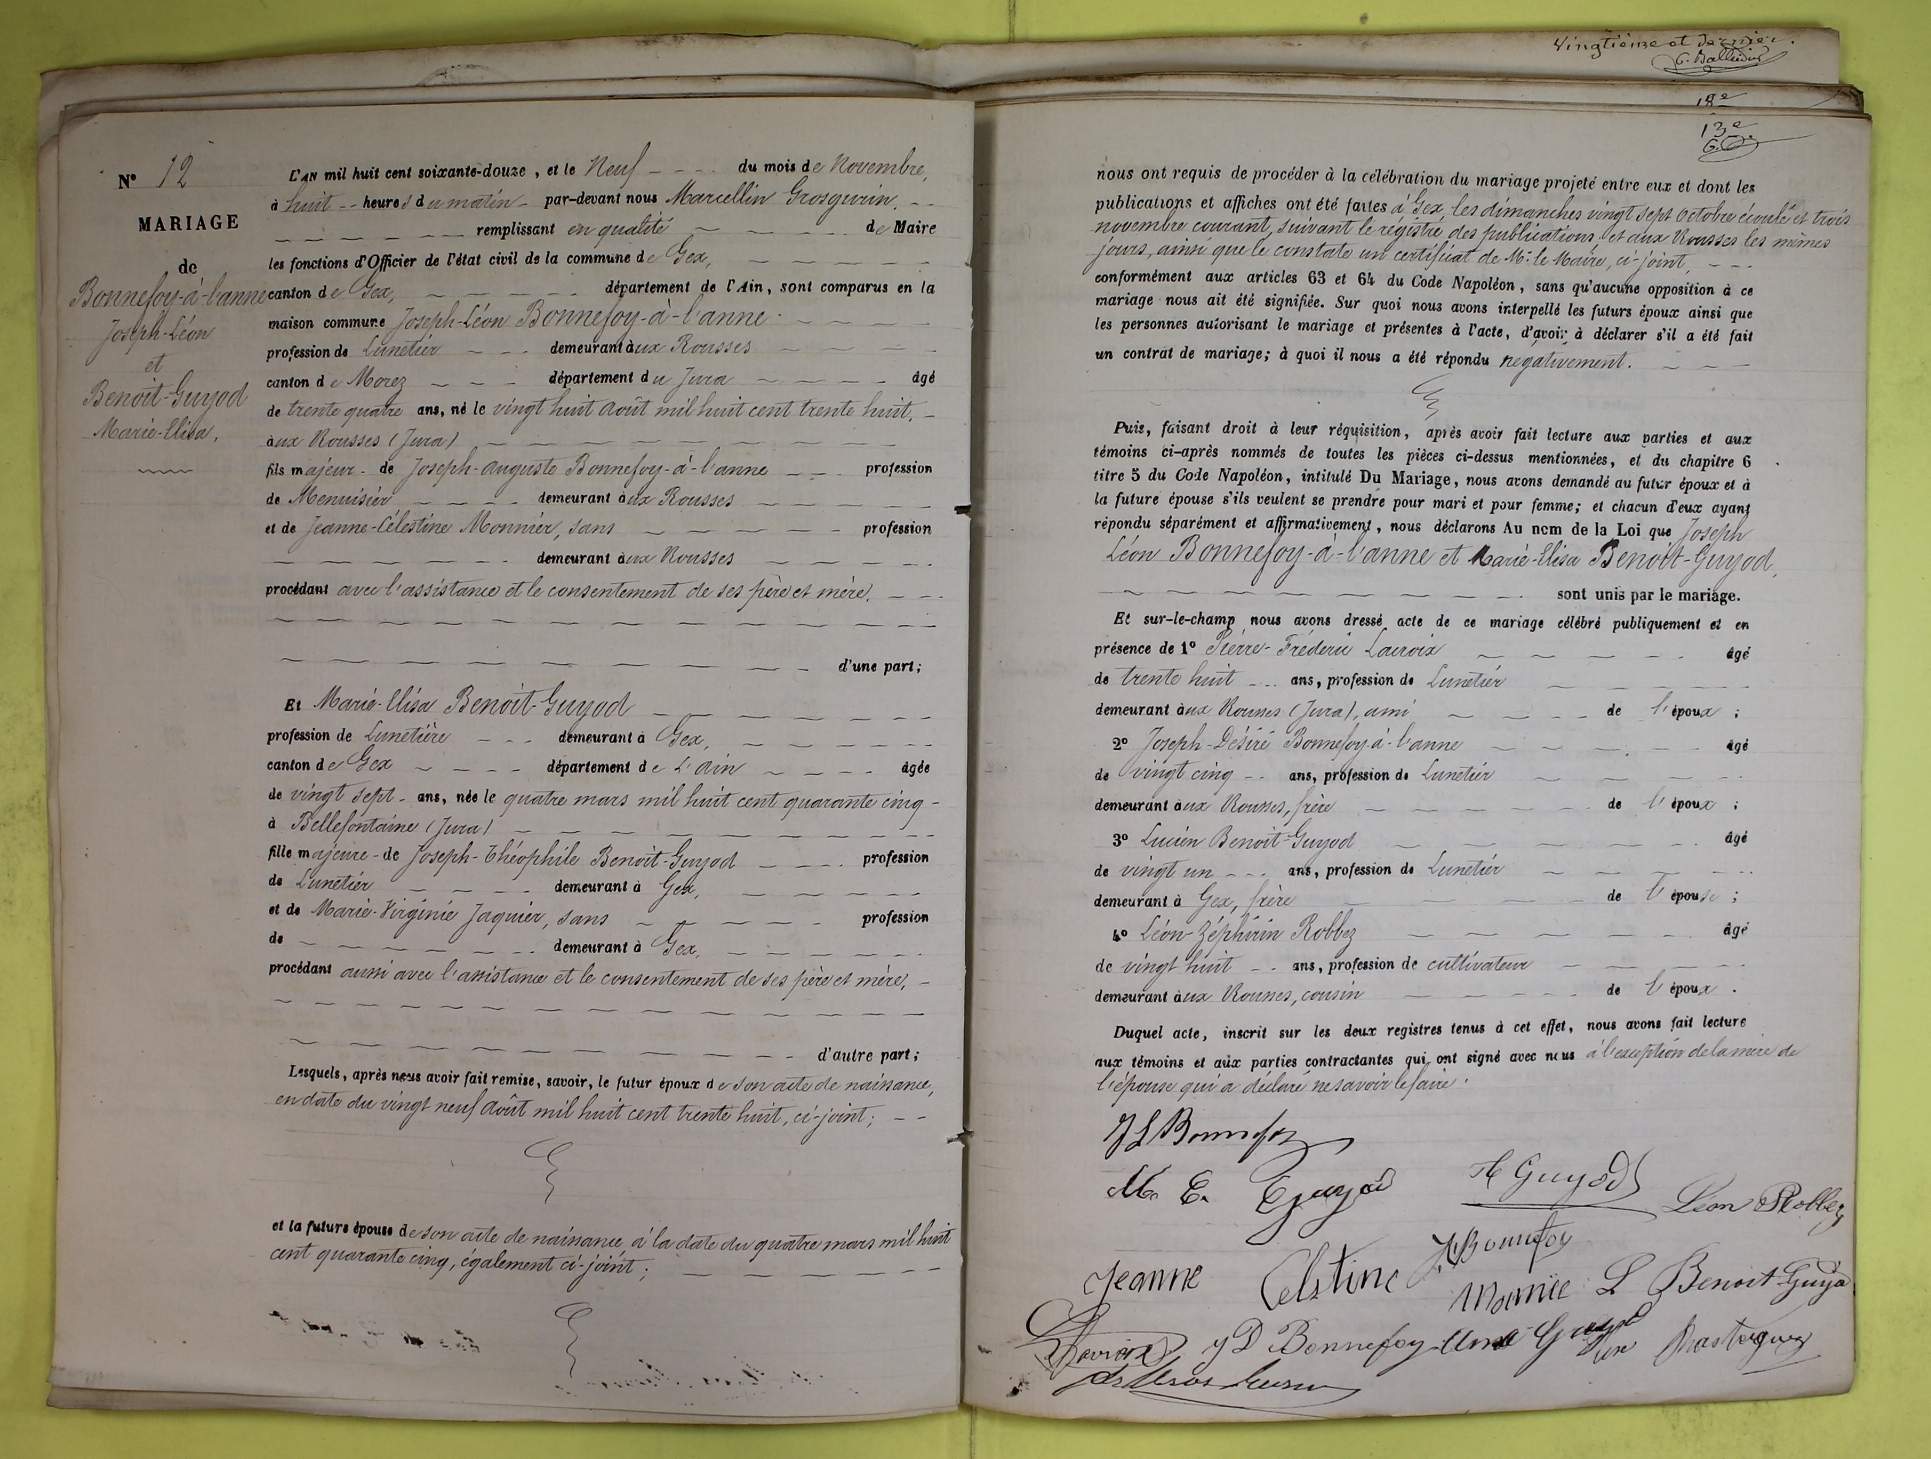 Vingtième et dernier.
18e
13e
N° 12
MARIAGE
de
Bonnefoy-à-l'anne
Joseph-Léon
et
Benoit-Guyod
Marie-Elisa,
L'AN mil huit cent soixante-douze, et le Neuf du mois de Novembre,
à huit heures du matin par-devant nous Marcellin Grosgurin,
remplissant en qualité de Maire
les fonctions d'Officier de l'état civil de la commune de Gex,
canton de Gex, département de l'Ain, sont comparus en la
maison commune Joseph-Léon Bonnefoy-à-l'anne
profession de Lunetier demeurant aux Rousses
canton de Morez département du Jura âgé
de trente quatre ans, né le vingt huit Août mil huit cent trente huit,
aux Rousses (Jura)
fils majeur de Joseph-Auguste Bonnefoy-à-l'anne profession
de Menuisier demeurant aux Rousses
et de Jeanne-Célestine Monnier, sans profession
demeurant aux Rousses
procédant avec l'assistance et le consentement de ses père et mère,
d'une part;
Et Marie-Elisa Benoit-Guyod
profession de Lunetière demeurant à Gex,
canton de Gex département de L'Ain âgée
de vingt sept ans, née le quatre mars mil huit cent quarante cinq
à Bellefontaine (Jura)
fille majeure de Joseph-Théophile Benoit-Guyod profession
de Lunetier demeurant à Gex,
et de Marie-Virginie Jaquier, sans profession
de demeurant à Gex,
procédant aussi avec l'assistance et le consentement de ses père et mère,
d'autre part;
Lesquels, après nous avoir fait remise, savoir, le futur époux de son acte de naissance,
en date du vingt neuf Août mil huit cent trente huit, ci-joint;
et la future épouse de son acte de naissance à la date du quatre mars mil huit
cent quarante cinq, également ci-joint;
nous ont requis de procéder à la célébration du mariage projeté entre eux et dont les
publications et affiches ont été faites à Gex, les dimanches vingt sept Octobre écoulé et trois
novembre courant, suivant le registre des publications, et aux Rousses les mêmes
jours, ainsi que le constate un certificat de Mr. le Maire, ci-joint,
conformément aux articles 63 et 64 du Code Napoléon, sans qu'aucune opposition à ce
mariage nous ait été signifiée. Sur quoi nous avons interpellé les futurs époux ainsi que
les personnes autorisant le mariage et présentes à l'acte, d'avoir à déclarer s'il a été fait
un contrat de mariage; à quoi il nous a été répondu négativement.
Puis, faisant droit à leur réquisition, après avoir fait lecture aux parties et aux
témoins ci-après nommés de toutes les pièces ci-dessus mentionnées, et du chapitre 6
titre 5 du Code Napoléon, intitulé Du Mariage, nous avons demandé au futur époux et à
la future épouse s'ils veulent se prendre pour mari et pour femme; et chacun d'eux ayant
répondu séparément et affirmativement, nous déclarons Au nom de la Loi que Joseph
Léon Bonnefoy-à-l'anne et Marie-Elisa Benoit-Guyod,
sont unis par le mariage.
Et sur-le-champ nous avons dressé acte de ce mariage célébré publiquement et en
présence de 1° Pierre-Frédéric Lacroix âgé
de trente huit ans, profession de Lunetier
demeurant aux Rousses (Jura), ami de l'époux;
2° Joseph-Désiré Bonnefoy-à-l'anne âgé
de vingt cinq ans, profession de Lunetier
demeurant aux Rousses, frère de l'époux;
3° Lucien Benoit-Guyod âgé
de vingt un ans, profession de Lunetier
demeurant à Gex, frère de l'épouse;
4° Léon-Zéphirin Robbez âgé
de vingt huit ans, profession de cultivateur
demeurant aux Rousses, cousin de l'époux.
Duquel acte, inscrit sur les deux registres tenus à cet effet, nous avons fait lecture
aux témoins et aux parties contractantes qui ont signé avec nous à l'exception de la mère de
l'épouse qui a déclaré ne savoir le faire.
J L Bonnefoy
M. E. Guyod
Guyod
Léon Robbez
Bonnefoy
Jeanne Celstine Monnie L Benoit-Guyo
Lacroix J D Bonnefoy